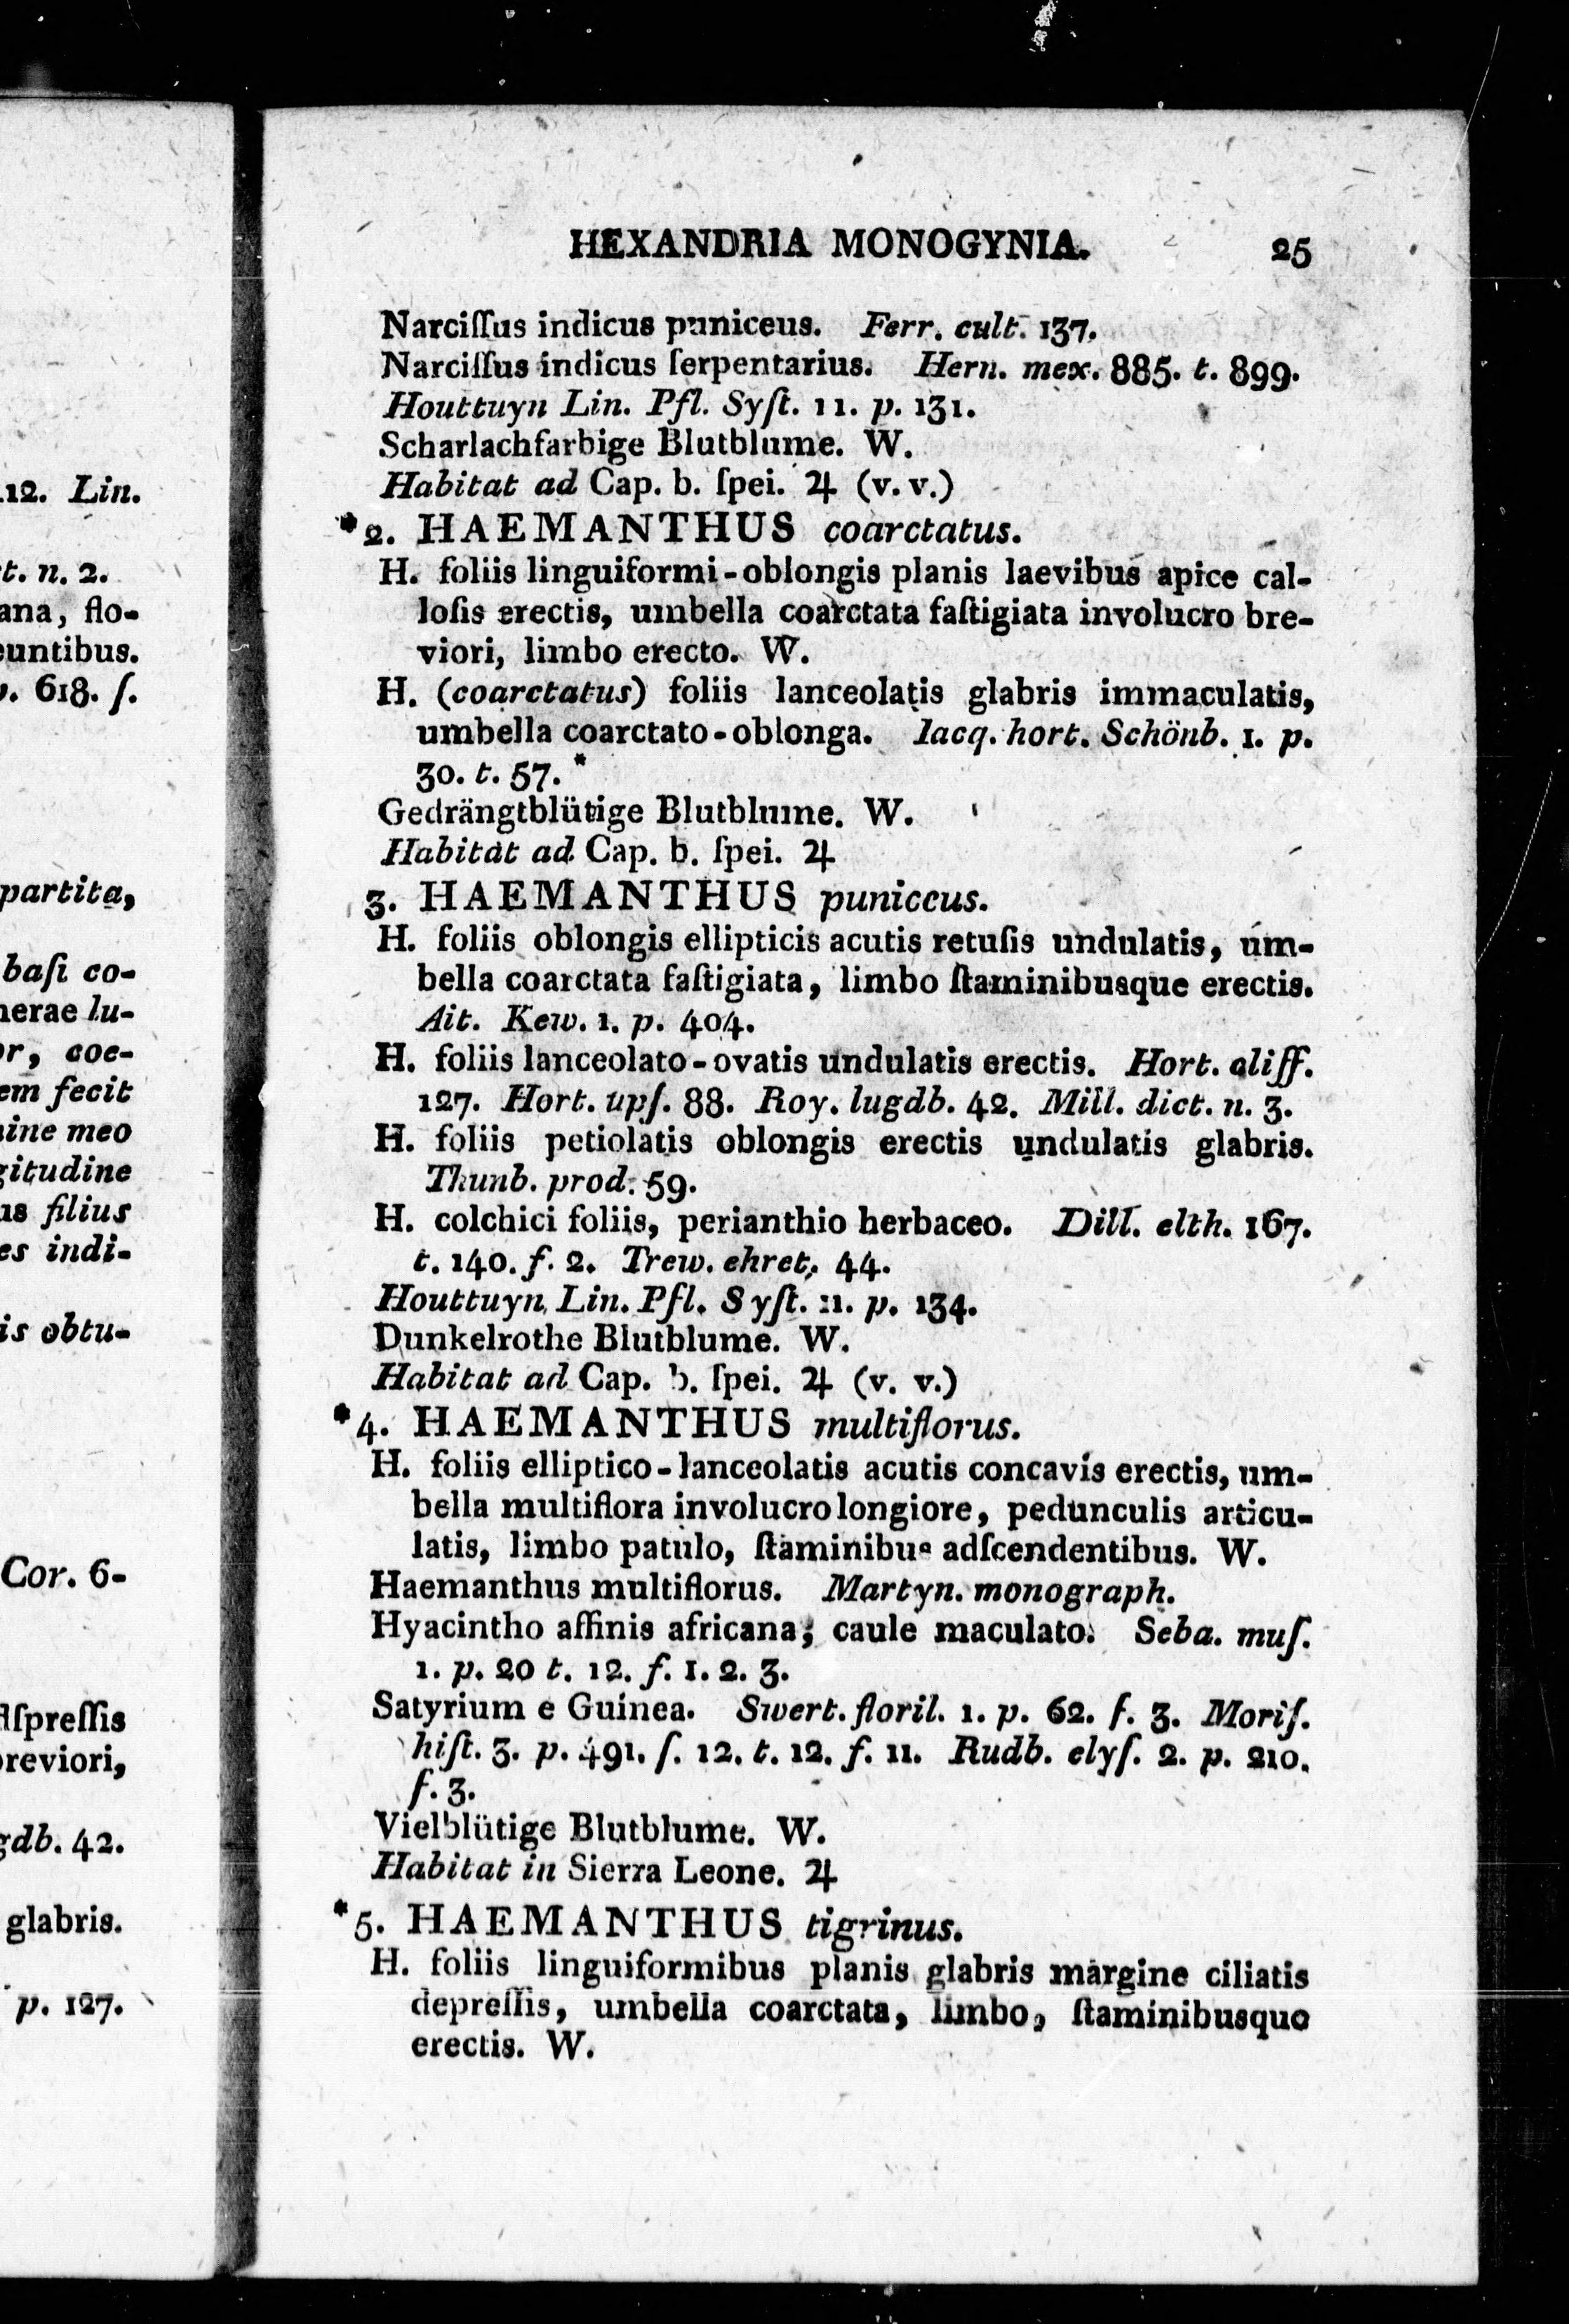 12. Lin.
t. n. 2.
ana, flo-
euntibus.
p. 618. ſ.
partita,
baſi co-
nerae lu-
or, coe-
em fecit
nine meo
gitudine
us filius
es indi-
is obtu-
Cor. 6-
ſpreſſis
breviori,
gdb. 42.
glabris.
p. 127.
HEXANDRIA MONOGYNIA. 25
Narciſſus indicus puniceus. Ferr. cult. 137.
Narciſſus indicus ſerpentarius. Hern. mex. 885. t. 899.
Houttuyn Lin. Pfl. Syſt. 11. p. 131.
Scharlachfarbige Blutblume. W.
Habitat ad Cap. b. ſpei. ♃ (v. v.)
*2. HAEMANTHUS coarctatus.
H. foliis linguiformi-oblongis planis laevibus apice cal-
loſis erectis, umbella coarctata faſtigiata involucro bre-
viori, limbo erecto. W.
H. (coarctatus) foliis lanceolatis glabris immaculatis,
umbella coarctato-oblonga. Iacq. hort. Schönb. 1. p.
30. t. 57. *
Gedrängtblütige Blutblume. W.
Habitat ad Cap. b. ſpei. ♃
3. HAEMANTHUS puniceus.
H. foliis oblongis ellipticis acutis retuſis undulatis, um-
bella coarctata faſtigiata, limbo ſtaminibusque erectis.
Ait. Kew. 1. p. 404.
H. foliis lanceolato-ovatis undulatis erectis. Hort. cliff.
127. Hort. upſ. 88. Roy. lugdb. 42. Mill. dict. n. 3.
H. foliis petiolatis oblongis erectis undulatis glabris.
Thunb. prod. 59.
H. colchici foliis, perianthio herbaceo. Dill. elth. 167.
t. 140. f. 2. Trew. ehret. 44.
Houttuyn Lin. Pfl. Syſt. 11. p. 134.
Dunkelrothe Blutblume. W.
Habitat ad Cap. b. ſpei. ♃ (v. v.)
*4. HAEMANTHUS multiflorus.
H. foliis elliptico-lanceolatis acutis concavis erectis, um-
bella multiflora involucro longiore, pedunculis articu-
latis, limbo patulo, ſtaminibus adſcendentibus. W.
Haemanthus multiflorus. Martyn. monograph.
Hyacintho affinis africana, caule maculato. Seba. muſ.
1. p. 20 t. 12. f. 1. 2. 3.
Satyrium e Guinea. Swert. floril. 1. p. 62. f. 3. Moriſ.
hiſt. 3. p. 491. ſ. 12. t. 12. f. 11. Rudb. elyſ. 2. p. 210.
f. 3.
Vielblütige Blutblume. W.
Habitat in Sierra Leone. ♃
*5. HAEMANTHUS tigrinus.
H. foliis linguiformibus planis glabris margine ciliatis
depreſſis, umbella coarctata, limbo, ſtaminibusque
erectis. W.